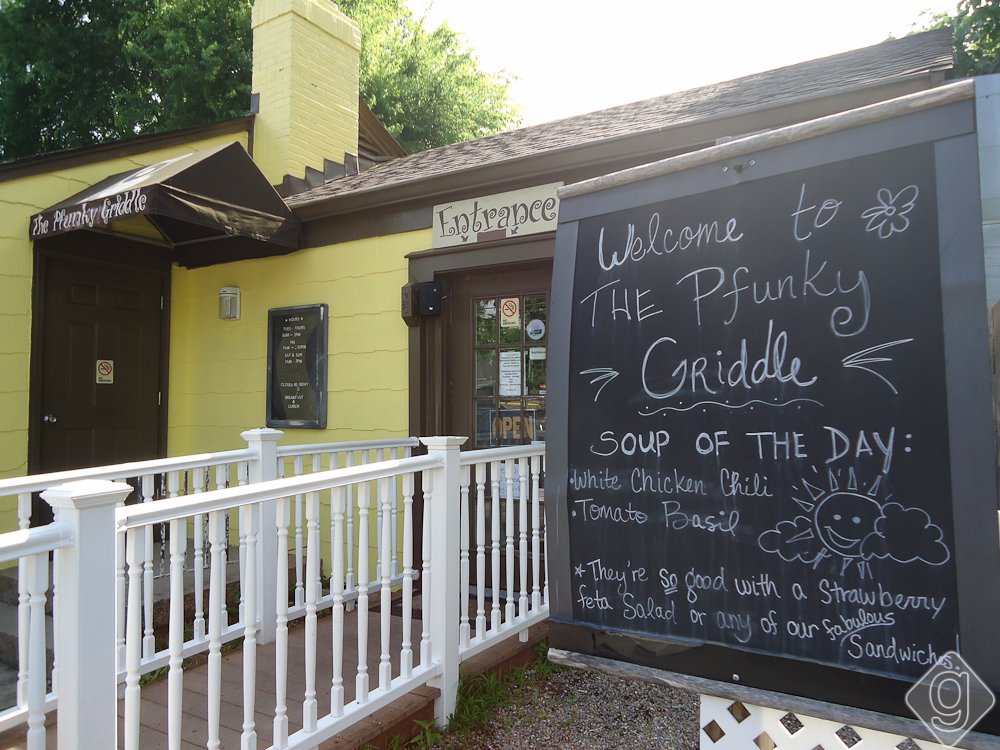 The Pfunky Griddle
Entrance
HOURS
TUES - THURS
8AM - 2PM
FRI
SAT & SUN
CLOSED MONDAY
BREAKFAST
&
LUNCH
OPEN
Welcome to
THE Pfunky
Griddle
SOUP OF THE DAY:
• White Chicken Chili
• Tomato Basil
* They're so good with a Strawberry
feta Salad or any of our fabulous
Sandwiches.
g